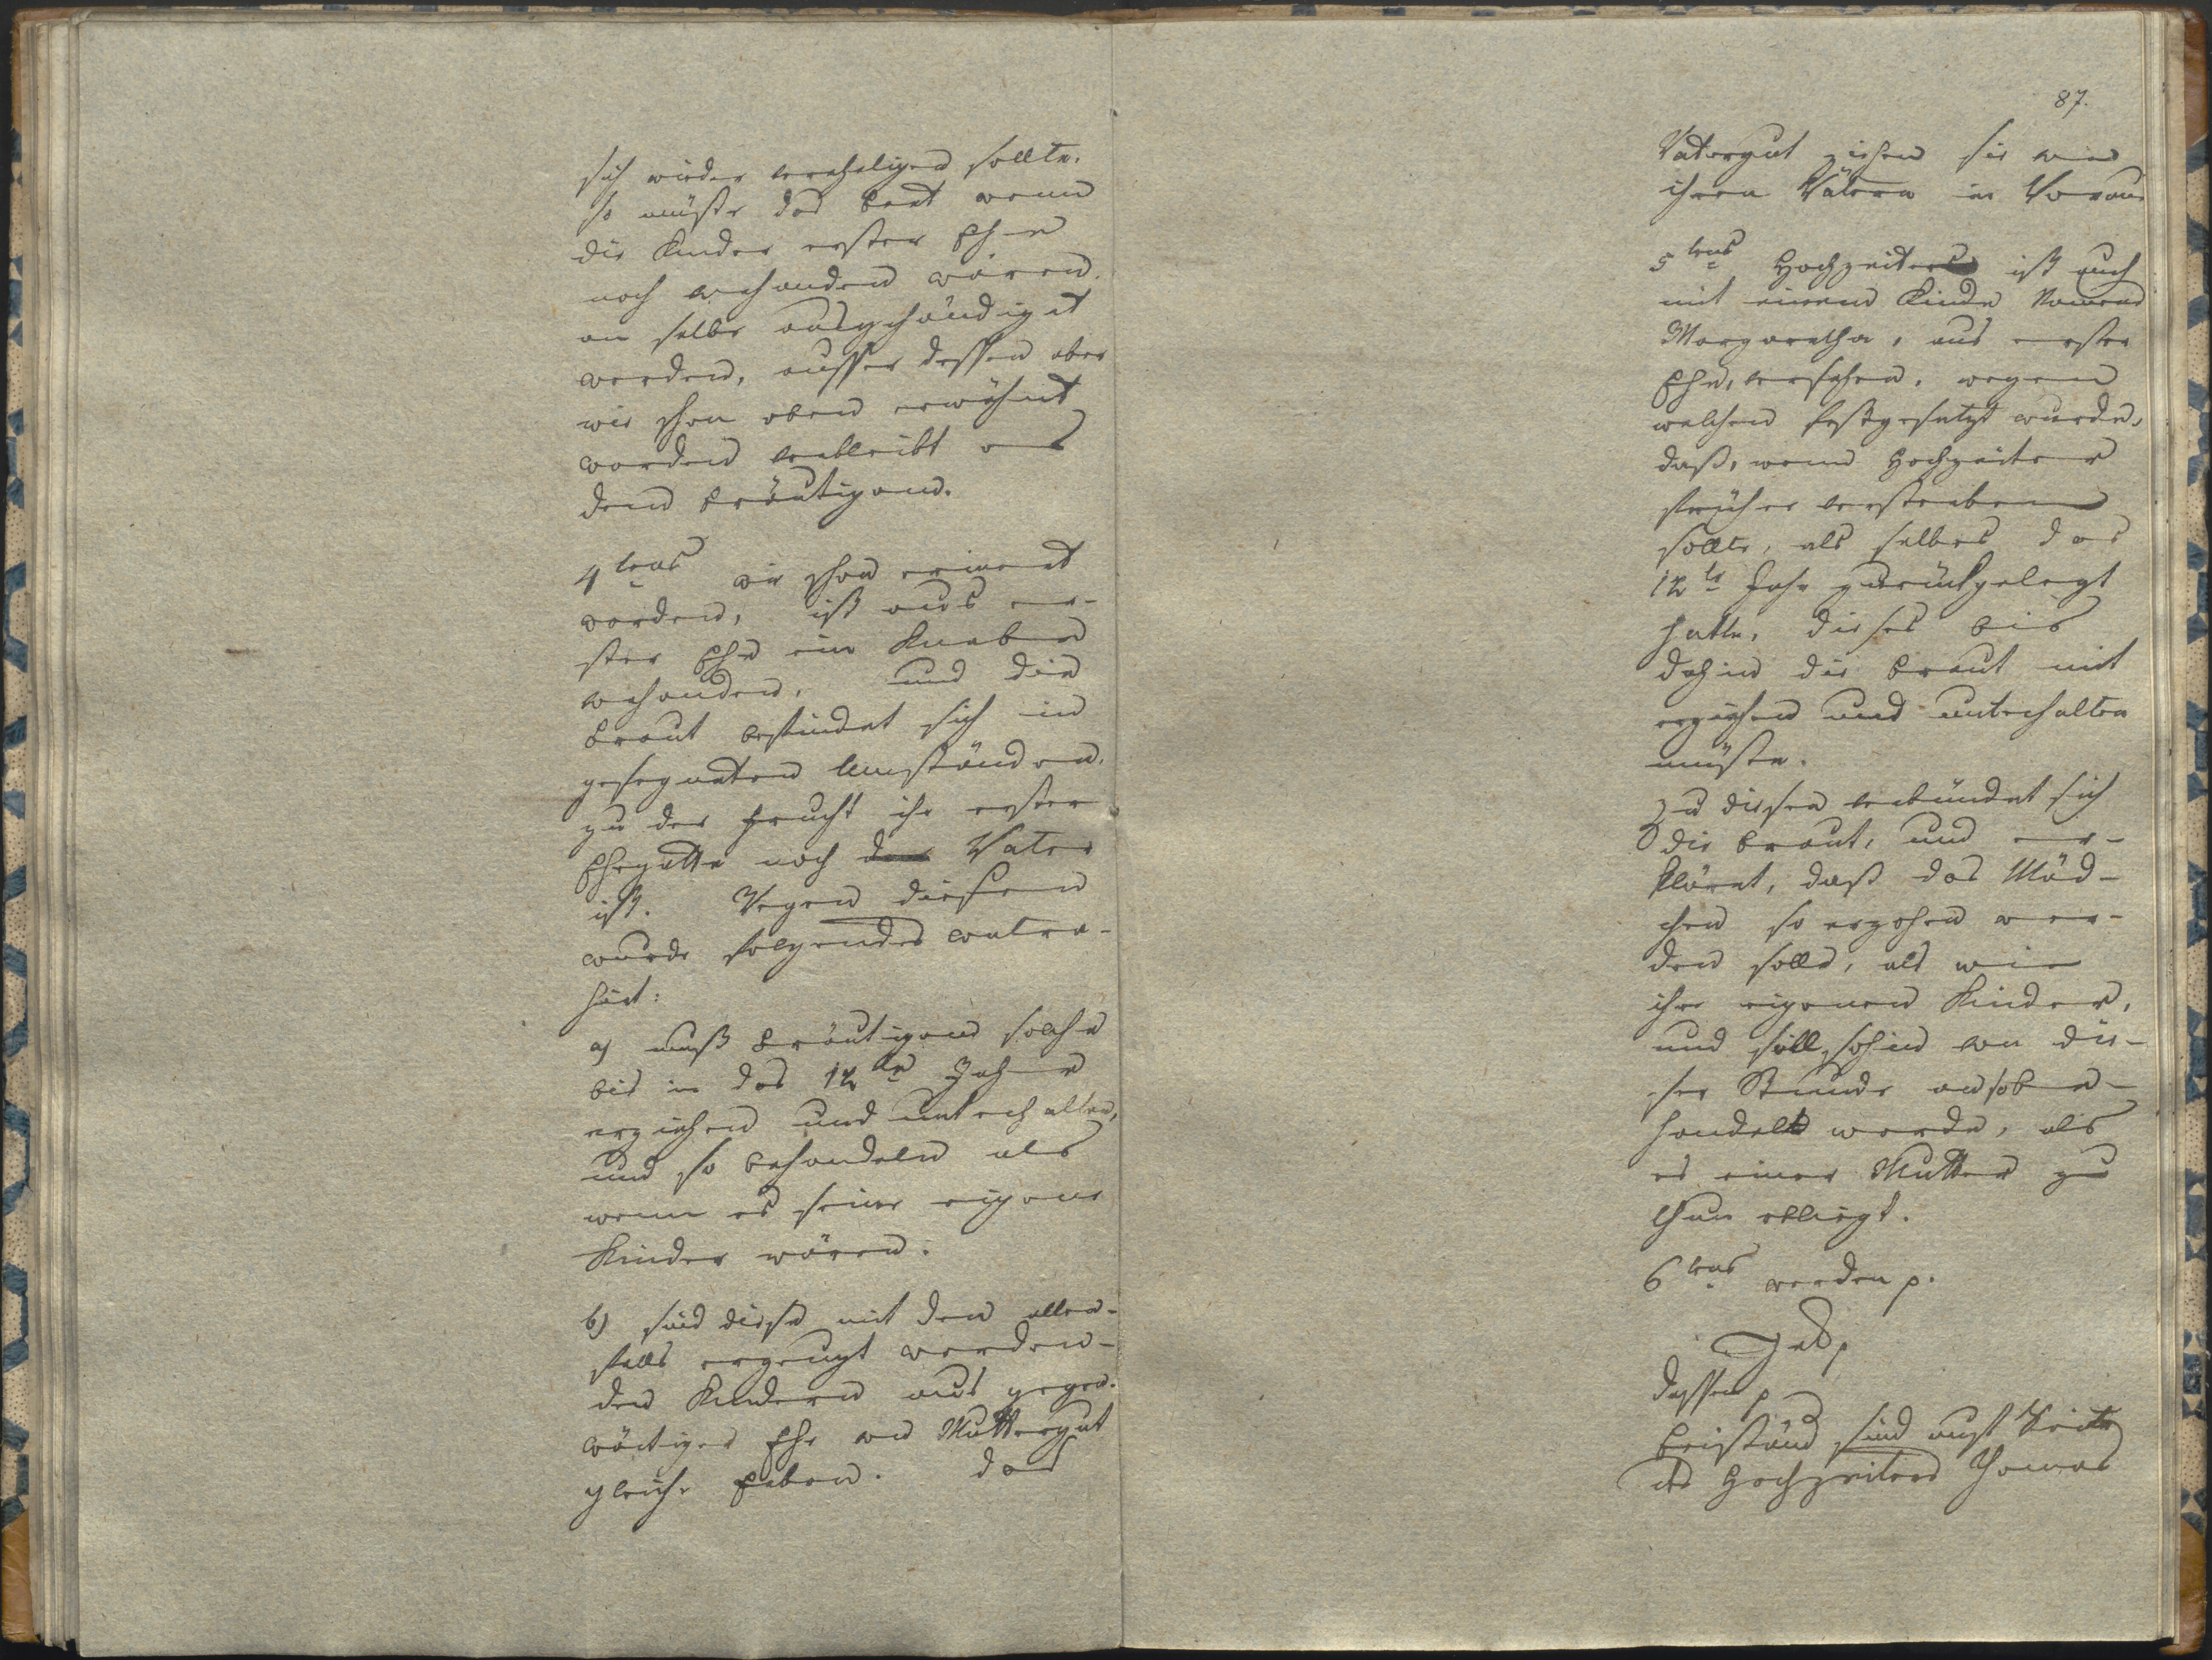 sich wieder vereheligen sollte.
so müßte das Bett wenn
die Kinder erster Ehe
noch vorhanden wären.
an selbe ausgehändiget
werden, ausser dessen aber
wie schon oben erwähnt
worden verbleibt es
dem Bräutigam.
4tens wie schon erinnert
worden, ist aus er-
ster Ehe ein Knaben
vorhanden, und die
Braut befindet sich in
gesegneten Umständen.
zu der Frucht ihr erster
Ehegatte noch der Vater
ist. Wegen diesem
wurde folgendes contra-
hirt:
a) muß Bräutigam solche
bis in das 12te Jahr
erziehen und unterhalten,
und so behandeln als
wenn es seine eigene
Kinder wären.
b) sind diese mit den allen-
falls erzeugt werden-
den Kindern aus gegen-
wärtiger Ehe an Muttergut
gleiche Erben. das
87.
Vatergut ziehen sie von
ihren Vätern in Voraus
5tens Hochzeiter ist auch
mit einem Kinde Namens
Margaretha, aus erster
Ehe, versehen, wegen
welchem festgesetzt wurde,
daß, wenn Hochzeiter
früher versterben
sollte, als selbes das
12te Jahr zurückgelegt
hatte, dieses bis
dahin die Braut mit
erziehen und unterhalten
müßte.
Zu diesen verbündet sich
die Braut, und er-
klärt, daß das Mäd-
chen so erzohen wer-
den solle, als wie
ihre eigenen Kinder,
und soll sohin von die-
ser Stunde an so be-
handelt werde, als
es einer Mutter zu
thun obliegt.
6tens werden p.
dessen p
Beiständ sind auf Seite
des Hochzeiters Thomas